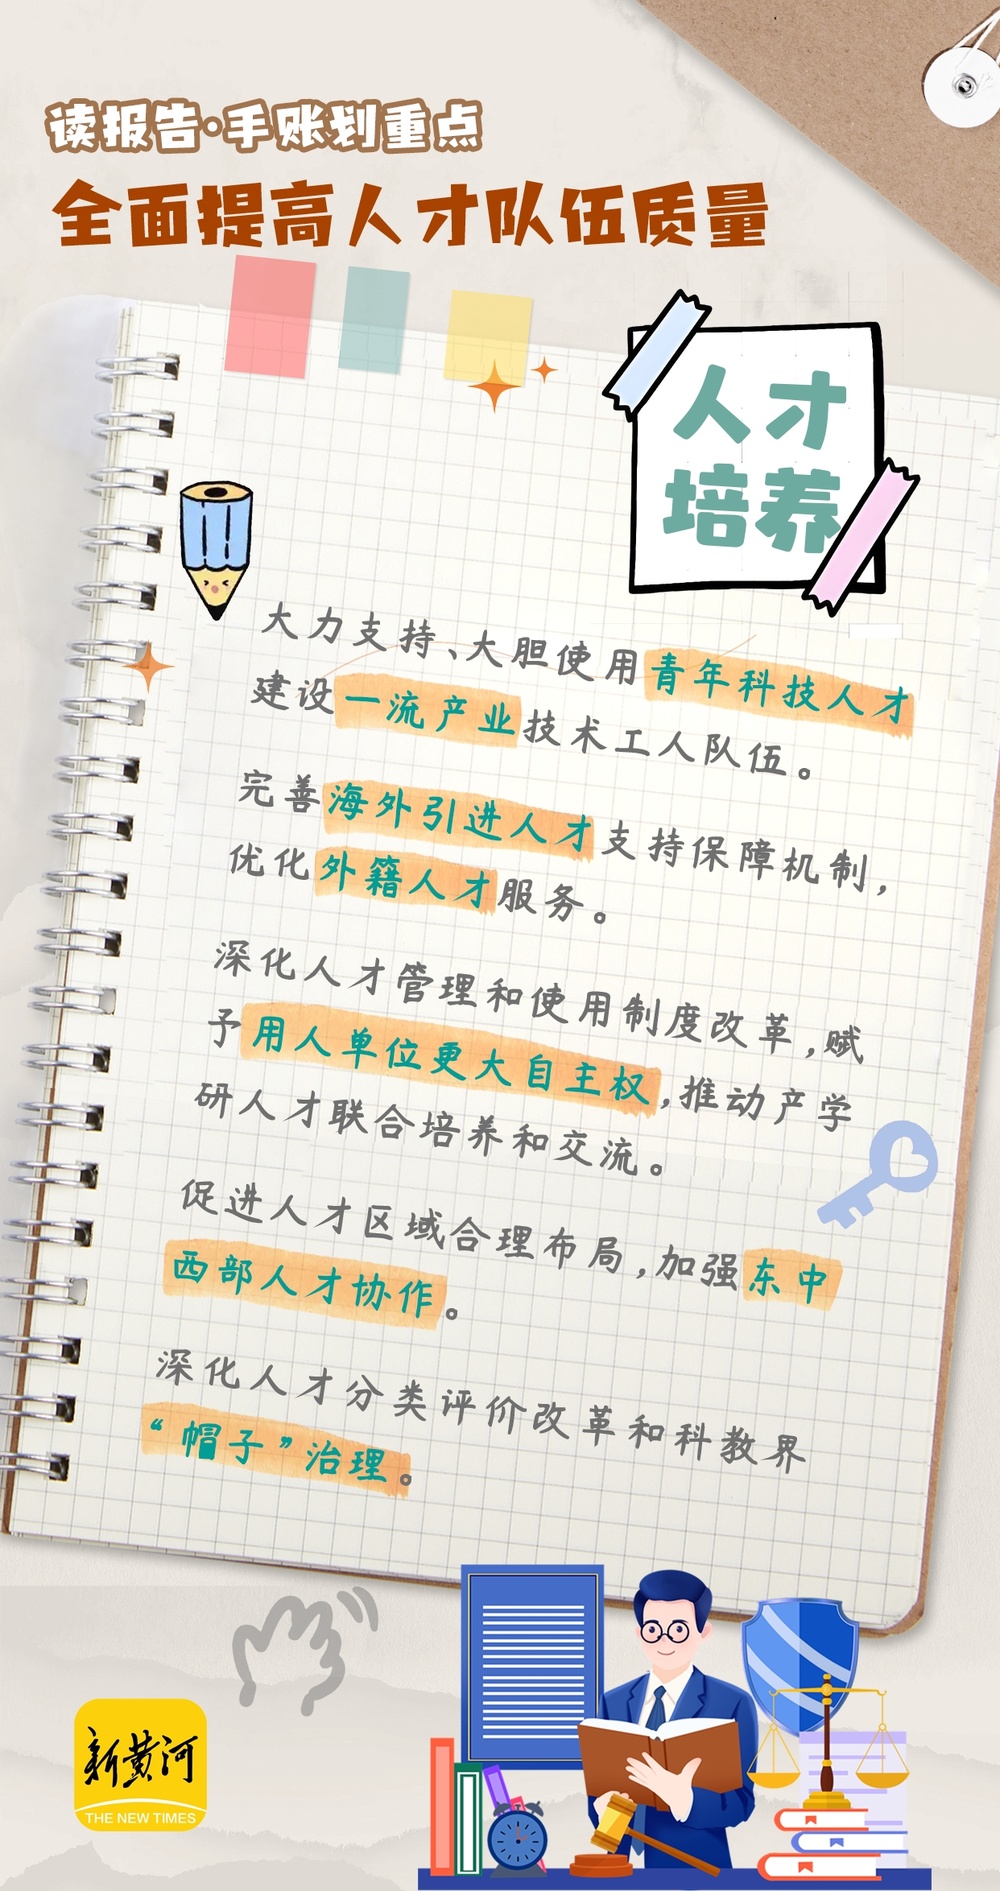 读报告·手账划重点
全面提高人才队伍质量
人才
培养
大力支持、大胆使用青年科技人才
建设一流产业技术工人队伍。
完善海外引进人才支持保障机制,
优化外籍人才服务。
深化人才管理和使用制度改革,赋
予用人单位更大自主权,推动产学
研人才联合培养和交流。
促进人才区域合理布局,加强东中
西部人才协作。
深化人才分类评价改革和科教界
“帽子”治理。
新黄河
THE NEW TIMES